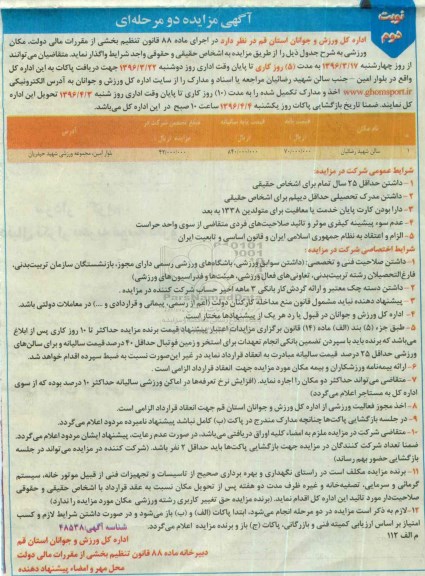 نوبت دوم
آگهی مزایده دو مرحله‌ای
اداره کل ورزش و جوانان استان قم در نظر دارد در اجرای ماده ۸۸ قانون تنظیم بخشی از مقررات مالی دولت، مکان
ورزشی به شرح جدول ذیل را از طریق مزایده به اشخاص حقیقی و حقوقی واجد شرایط واگذار نماید. متقاضیان می‌توانند
از روز چهارشنبه ۱۳۹۶/۳/۱۷ به مدت (۵) روز کاری تا پایان وقت اداری روز دوشنبه ۱۳۹۶/۳/۲۲ جهت دریافت پاکات به این اداره کل
واقع در بلوار امین - جنب سالن شهید رضائیان مراجعه یا اسناد و مدارک را از سایت اداره کل ورزش و جوانان به آدرس الکترونیکی
www.ghomsport.ir اخذ و مدارک تکمیل شده را به مدت (۱۰) روز کاری تا پایان وقت اداری روز شنبه ۱۳۹۶/۴/۳ تحویل این اداره
کل نمایند. ضمنا تاریخ بازگشایی پاکات روز یکشنبه ۱۳۹۶/۴/۴ ساعت ۱۰ صبح در این اداره کل می‌باشد.
نام مکان
آدرس
۱
بلوار امین، مجموعه ورزشی شهید حیدریان
شرایط عمومی شرکت در مزایده:
۱ - داشتن حداقل ۲۵ سال تمام برای اشخاص حقیقی
۲ - داشتن مدرک تحصیلی حداقل دیپلم برای اشخاص حقیقی
۳ - دارا بودن کارت پایان خدمت یا معافیت برای متولدین ۱۳۳۸ به بعد
۴ - عدم سوء پیشینه کیفری موثر و تائید صلاحیت‌های فردی متقاضی از سوی واحد حراست
۵ - الزام و اعتقاد به نظام جمهوری اسلامی ایران و قانون اساسی و تابعیت ایران
شرایط اختصاصی شرکت در مزایده:
۱- داشتن صلاحیت فنی و تخصصی: (داشتن سوابق ورزشی، باشگاه‌های ورزشی رسمی دارای مجوز، بازنشستگان سازمان تربیت‌بدنی،
فارغ‌التحصیلان رشته تربیت‌بدنی، تعاونی‌های فعال ورزشی، هیئت‌ها و فدراسیون‌های ورزشی)
۲ - داشتن دسته چک معتبر و ارائه گردش کار بانکی ۳ ماهه اخیر حساب شرکت کننده در مزایده.
۳ - پیشنهاد دهنده نباید مشمول قانون منع مداخله کارکنان دولت (اعم از رسمی، پیمانی و قراردادی و ...) در معاملات دولتی باشد.
۴ - اداره کل ورزش و جوانان در قبول یا رد هر یک از پیشنهادها مختار است.
۵ - طبق جزء (۵) بند (الف) ماده (۱۴) قانون برگزاری مزایدات اعتبار پیشنهاد قیمت برنده مزایده حداکثر تا ۱۰ روز کاری پس از ابلاغ
می‌باشد که برنده باید با سپردن تضمین بانکی انجام تعهدات برای استخر و زمین فوتبال حداقل ۴۰ درصد قیمت سالیانه و برای سالن‌های
ورزشی حداقل ۲۵ درصد قیمت سالیانه مبادرت به انعقاد قرارداد نماید در غیر این‌صورت نسبت به ضبط سپرده اقدام خواهد شد.
۶ - ارائه بیمه‌نامه ورزشکاران و بیمه مکان مورد مزایده جهت انعقاد قرارداد الزامی است.
۷ - متقاضی می‌تواند حداکثر دو مکان را اجاره نماید. (افزایش نرخ تعرفه‌ها در اماکن ورزشی سالیانه حداکثر ۱۰ درصد بوده که از سوی
اداره کل به مستاجر اعلام می‌گردد)
۸ - اخذ مجوز فعالیت ورزشی از اداره کل ورزش و جوانان استان قم جهت انعقاد قرارداد الزامی است.
۹ - در جلسه بازگشایی پاکات‌ها چنانچه مدارک مندرج در پاکت (ب) کامل نباشد پیشنهاد نامبرده مردود اعلام می‌گردد.
۱۰ - متقاضی شرکت در مزایده ملزم به امضاء کلیه اوراق دریافتی می‌باشد، در صورت عدم رعایت، پیشنهاد ایشان مردود اعلام می‌گردد.
ضمنا تعداد شرکت کنندگان در مزایده جهت بازگشایی پاکت‌ها باید حداقل ۲ نفر باشد. (شرکت کننده در مزایده می‌تواند در جلسه
بازگشایی حضور بهم رساند)
۱۱ - برنده مزایده مکلف است در راستای نگهداری و بهره برداری صحیح از تاسیسات و تجهیزات فنی از قبیل موتور خانه، سیستم
گرمائی و سرمایی، تصفیه‌خانه و غیره ظرف مدت دو هفته پس از تحویل مکان نسبت به عقد قرارداد با اشخاص حقیقی و حقوقی
صلاحیت‌دار مورد تائید این اداره کل اقدام نماید. (برنده مزایده حق تغییر کاربری رشته ورزشی مکان مورد مزایده را ندارد)
۱۲- لازم به ذکر است مزایده در دو مرحله انجام می‌شود، ابتدا پاکات (الف) و (ب) باز می‌شود و در صورت داشتن شرایط لازم و کسب
امتیاز بر اساس ارزیابی کمیته فنی و بازرگانی، پاکات (ج) باز و برنده مزایده اعلام می‌گردد.
شناسه آگهی: ۴۸۵۳۸
م الف ۱۱۲
اداره کل ورزش و جوانان استان قم
دبیرخانه ماده ۸۸ قانون تنظیم بخشی از مقررات مالی دولت
محل مهر و امضاء پیشنهاد دهنده